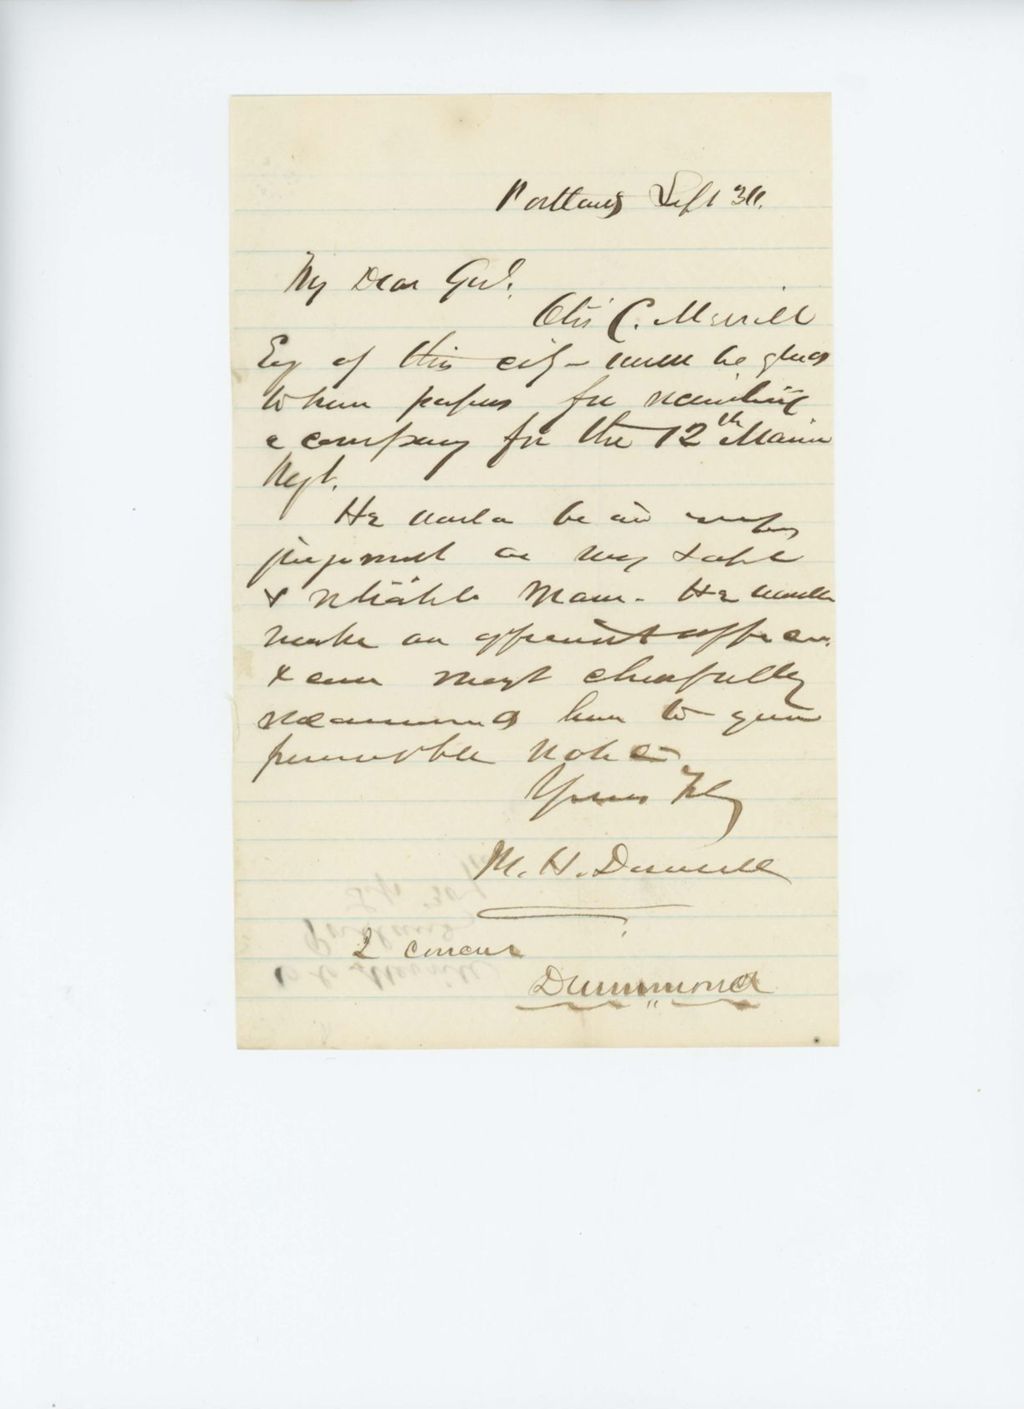 Portland Sept 30.
My Dear Gov.
Otis C. Merrill
Esq of this city - would be glad
to have papers for recruiting
a company for the 12th Maine
Regt.
He would be in
judgment a very safe
& reliable man. He would
make an efficient officer
& can most cheerfully
recommend him to your
favorable notice
Yours Tly
M. H. Dunnell
I concur
Drummond